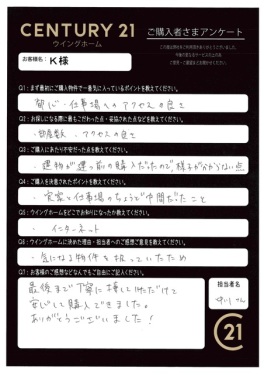 CENTURY 21
ウイングホーム
ご購入者さまアンケート
お客様名： K様
Q1：まず最初にご購入物件で一番気に入っているポイントを教えてください。
都心・仕事場へのアクセスの良さ
Q2：お探しになる際に最もこだわった点・妥協された点などを教えてください。
・部屋数、アクセスの良さ
Q3：ご購入にあたり不安だった点を教えてください。
・建物が建つ前の購入だったので様子が分からない点
Q4：ご購入を決意されたポイントを教えてください。
・実家と仕事場のちょうど中間だったこと
Q5：ウイングホームをどこでお知りになったか教えてください。
・インターネット
Q6：ウイングホームに決めた理由・担当者へのご感想ご意見を教えてください。
・気になる物件を扱っていたため
Q7：お客様のご感想などなんでもご自由にご記入ください。
最後まで丁寧に接していただけて
安心して購入できました。
ありがとうございました！
担当者名
さん
C21